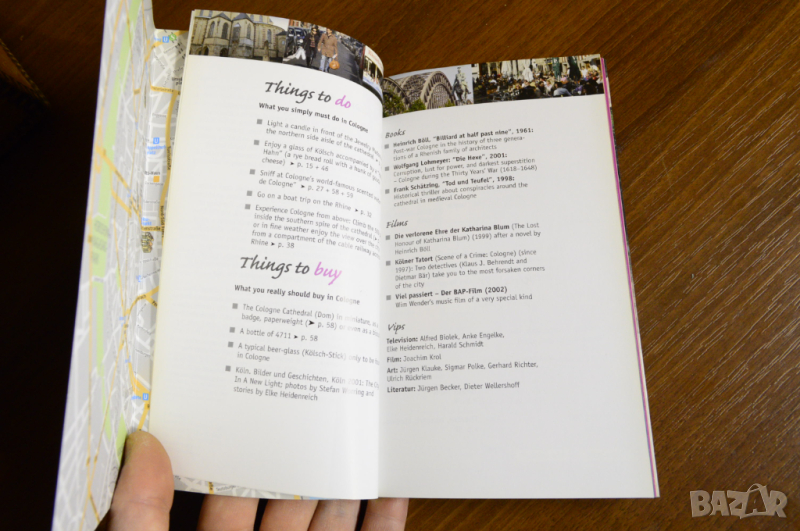 Things to do
What you simply must do in Cologne
Light a candle in front of the Jewelry
the northern side aisle of the cathedral
Enjoy a glass of Kölsch accompanied by a "
Hahn" (a rye bread roll with a hunk of
cheese) ➤ p. 15 + 46
Sniff at Cologne's world-famous scented water
de Cologne" ➤ p. 27 + 58 + 59
Go on a boat trip on the Rhine ➤ p.
Experience Cologne from above: Climb the
inside the southern spire of the cathedral
or in fine weather enjoy the view over the city
from a compartment of the cable railway
Rhine ➤ p. 38
Things to buy
What you really should buy in Cologne
The Cologne Cathedral (Dom) in miniature, as a
badge, paperweight (➤ p. 58) or even as a
A bottle of 4711 ➤ p. 58
A typical beer-glass (Kölsch-Stick) only to be
in Cologne
Köln. Bilder und Geschichten, Köln 2001: The
In A New Light; photos by Stefan and
stories by Elke Heidenreich
Books
Heinrich Böll, "Billiard at half past nine", 1961:
Post-war Cologne in the history of three genera-
tions of a Rhenish family of architects
Wolfgang Lohmeyer: "Die Hexe", 2001:
Corruption, lust for power, and darkest superstition
– Cologne during the Thirty Years' War (1618–1648)
Frank Schätzing, "Tod und Teufel", 1998:
Historical thriller about conspiracies around the
cathedral in medieval Cologne
Films
Die verlorene Ehre der Katharina Blum (The Lost
Honour of Katharina Blum) (1999) after a novel by
Heinrich Böll
Kölner Tatort (Scene of a Crime: Cologne) (Vince
1997): Two detectives (Klaus J. Behrendt and
Dietmar Bär) take you to the most forsaken corners
of the city
Viel passiert – Der BAP-Film (2002)
Wim Wender's music film of a very special kind
Vips
Television: Alfred Biolek, Anke Engelke,
Elke Heidenreich, Harald Schmidt
Film: Joachim Krol
Art: Jürgen Klauke, Sigmar Polke, Gerhard Richter,
Ulrich Rückriem
Literatur: Jürgen Becker, Dieter Wellershoff
BAZAR.bg